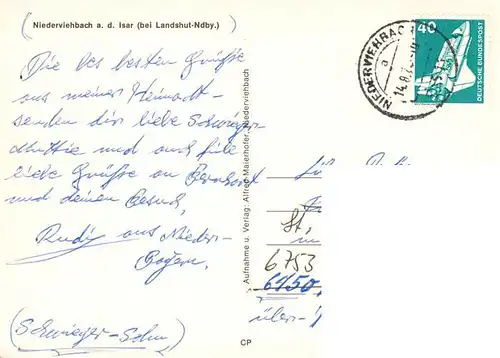 Niederviehbach a. d. Isar (bei Landshut-Ndby.)
Die besten Grüße
aus meiner Heimadt
senden dir liebe Schwieger
Muttie und auch fiele
liebe Grüße an Bernhard
und deinen Besuch,
Rudi aus Nieder-
Bayern.
(Schwieger-Sohn)
Aufnahme u. Verlag: Alfred Maierhofer, Niederviehbach
CP
40
DEUTSCHE BUNDESPOST
NIEDERVIEHBAC
a
14.8.7
St,
6753
6750
über-